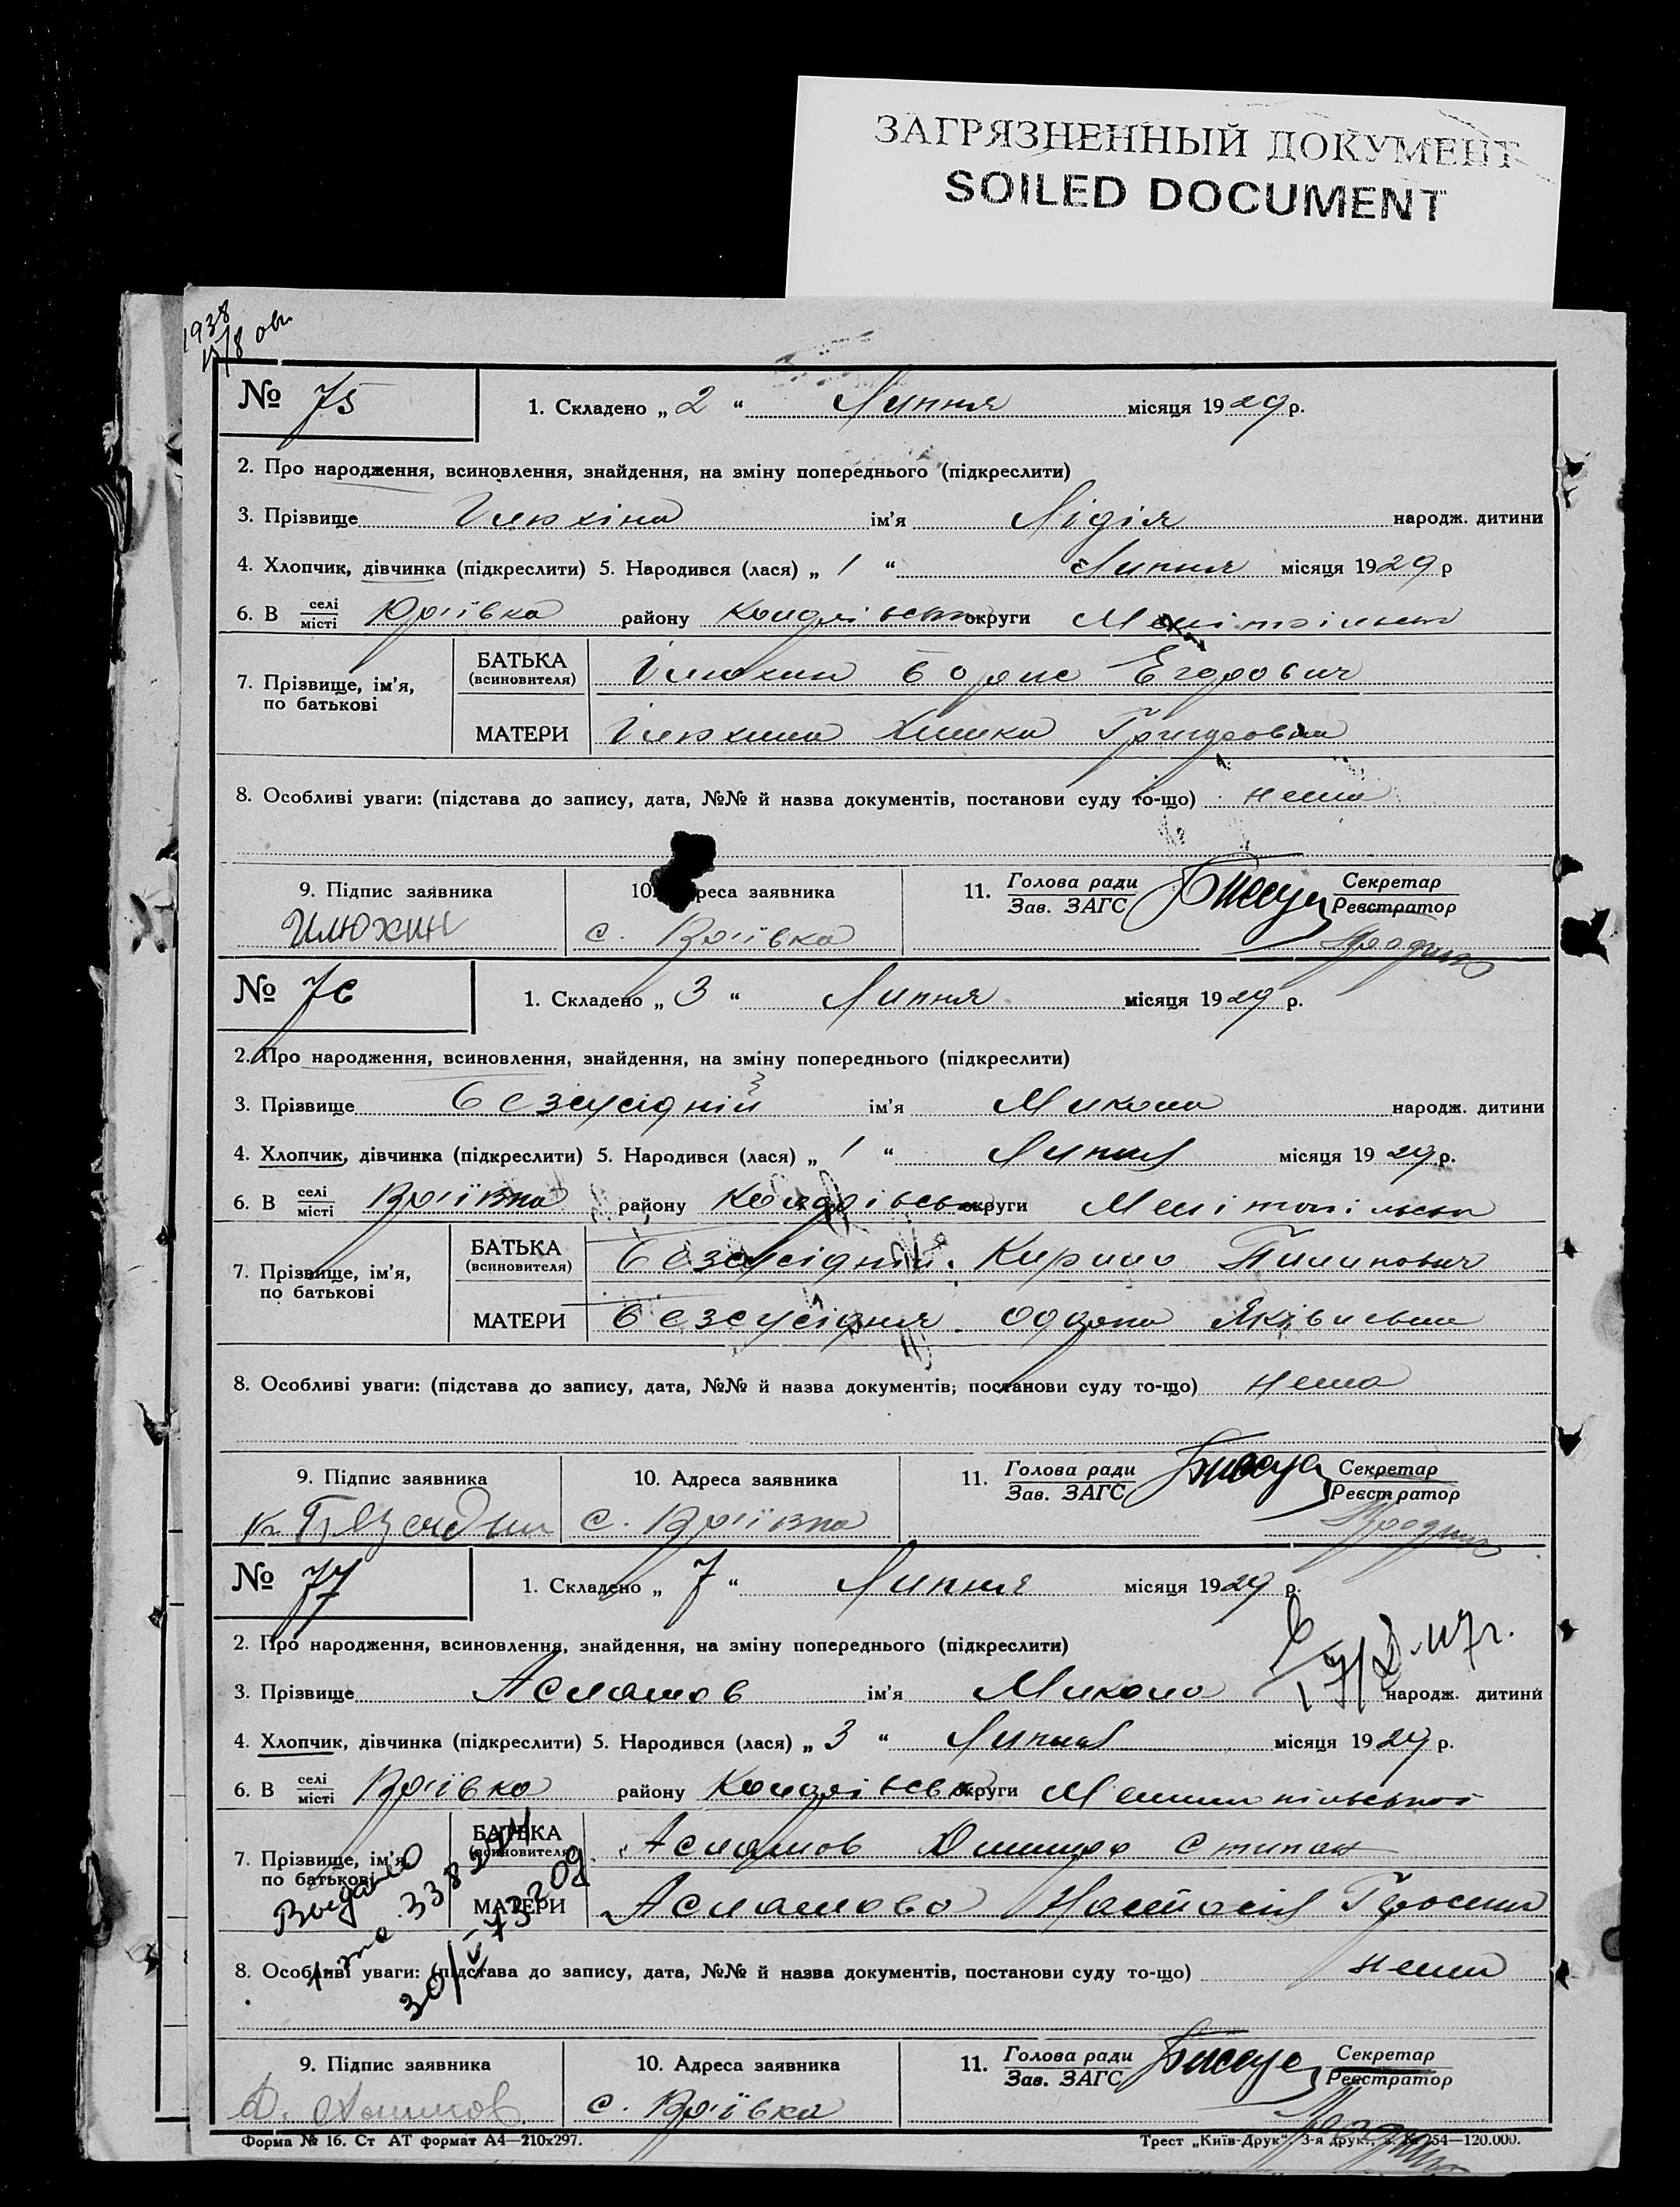 ЗАГРЯЗНЕННЫЙ ДОКУМЕНТ
SOILED DOCUMENT
1938
№ 75
1. Складено „ 2 “ Липня місяця 1929 р.
2. Про народження, всиновлення, знайдення, на зміну попереднього (підкреслити)
3. Прізвище Ілюхіна ім’я Лідія народж. дитини
4. Хлопчик, дівчинка (підкреслити) 5. Народився (лася) „ 1 “ Липня місяця 1929 р
6. В селі місті Юріївка району округи
7. Прізвище, ім’я, по батькові
БАТЬКА (всиновителя) Ілюхин Борис Егорович
МАТЕРИ Ілюхина
8. Особливі уваги: (підстава до запису, дата, №№ й назва документів, постанови суду то-що) нема
9. Підпис заявника 10. Адреса заявника 11. Голова ради Зав. ЗАГС Секретар Реєстратор
Илюхин с. Юріївка
№ 76
1. Складено „ 3 “ Липня місяця 1929 р.
2. Про народження, всиновлення, знайдення, на зміну попереднього (підкреслити)
3. Прізвище Безсусідній ім’я Микола народж. дитини
4. Хлопчик, дівчинка (підкреслити) 5. Народився (лася) „ 1 “ Липня місяця 1929 р.
6. В селі місті Юріївка району округи Мелітопільськ
7. Прізвище, ім’я, по батькові
БАТЬКА (всиновителя) Безсусідній Кирило Пилипович
МАТЕРИ Безсусідня Одарка Яківисьна
8. Особливі уваги: (підстава до запису, дата, №№ й назва документів, постанови суду то-що) нема
9. Підпис заявника 10. Адреса заявника 11. Голова ради Зав. ЗАГС Секретар Реєстратор
с. Юріївка
№ 77
1. Складено „ 7 “ Липня місяця 1929 р.
2. Про народження, всиновлення, знайдення, на зміну попереднього (підкреслити)
3. Прізвище Асламов ім’я Микола народж. дитини
4. Хлопчик, дівчинка (підкреслити) 5. Народився (лася) „ 3 “ Липня місяця 1929 р.
6. В селі місті Юріївка району округи
7. Прізвище, ім’я, по батькові
БАТЬКА (всиновителя) Асламов Дмитро Степан
МАТЕРИ Асламова Наталія
8. Особливі уваги: (підстава до запису, дата, №№ й назва документів, постанови суду то-що) нема
9. Підпис заявника 10. Адреса заявника 11. Голова ради Зав. ЗАГС Секретар Реєстратор
с. Юріївка
Форма № 16. Ст АТ формат А4—210х297.
Трест „Київ-Друк“, 3-я друк., 254—120.000.